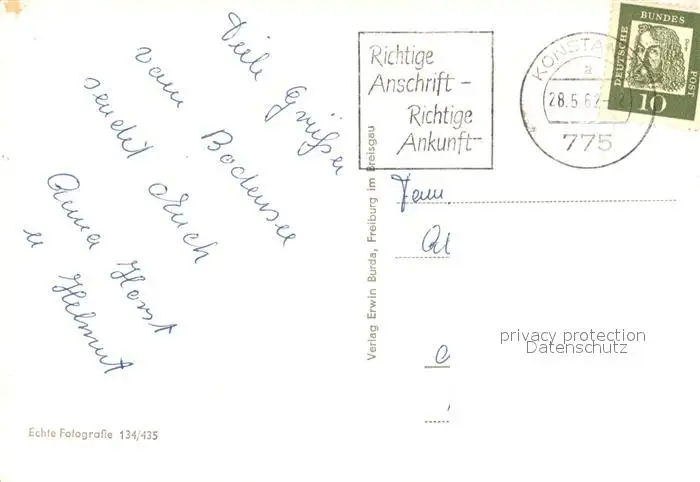 Viele Grüße
vom Bodensee
sendet Euch
Anna Horst
u Helmut
Echte Fotografie 134/435
Verlag Erwin Burda, Freiburg im Breisgau
Richtige
Anschrift –
Richtige
Ankunft
KONSTAN
a
28.5.62-12
775
DEUTSCHE
BUNDES
POST
10
Fam
privacy protection
Datenschutz